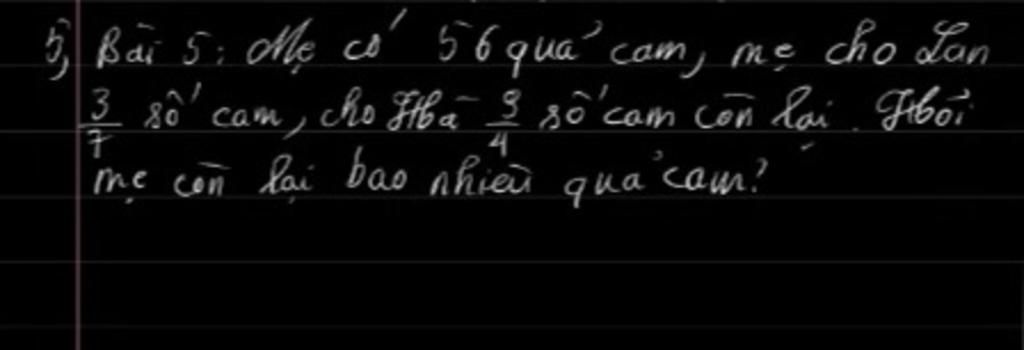 5, Bài 5: Mẹ có 56 quả cam, mẹ cho Lan
3/7 số cam, cho Hoà 3/4 số cam còn lại. Hỏi
mẹ còn lại bao nhiêu quả cam?